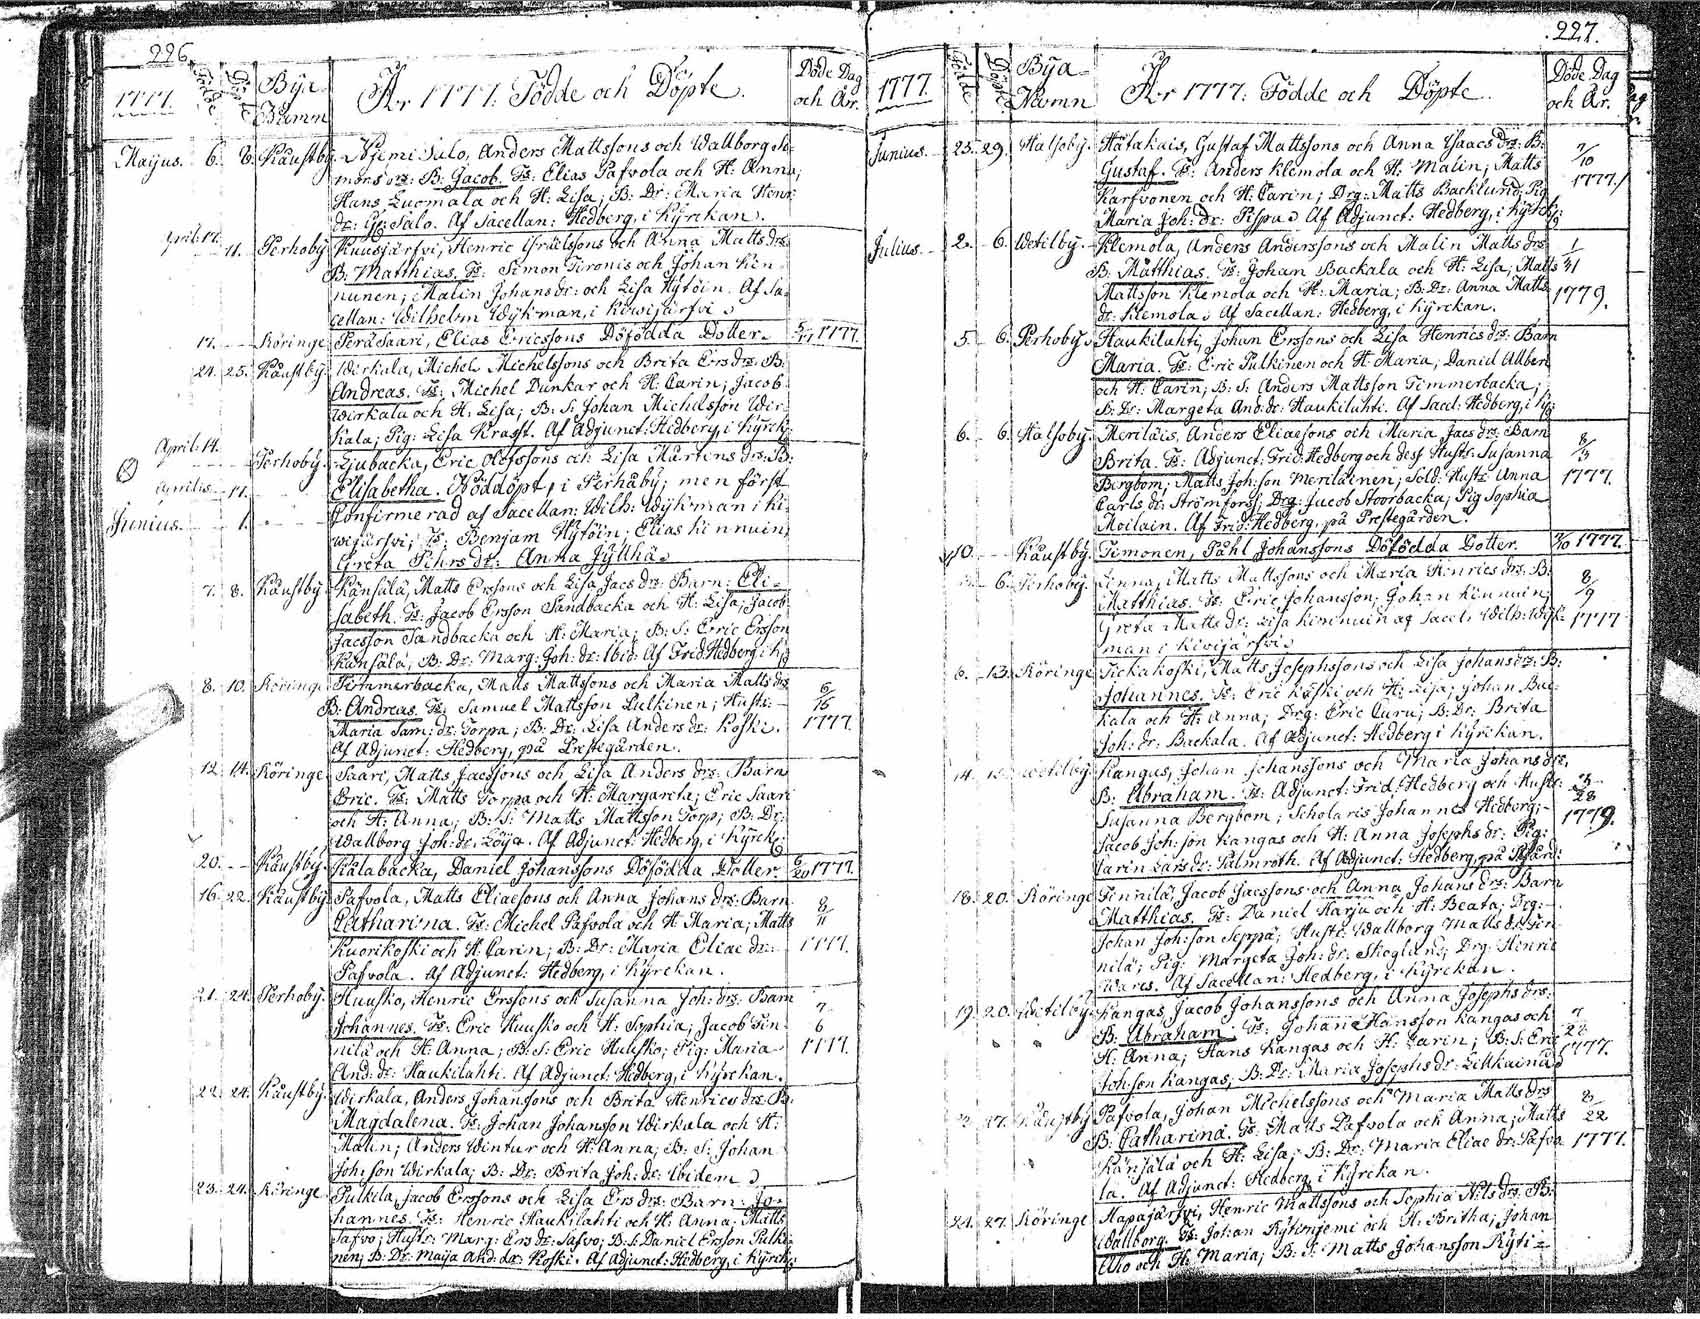 226.
1777.
Födde
Döpte
Bya
Namn
År 1777: Födde och Döpte.
Döde Dag
och År.
Majus. 6. 8. Kaustby. Niemi Salo, Anders Mattssons och Wallborg Si
mons drs: B: Jacob. Ts: Elias Pafvola och H: Anna;
Hans Luomala och H: Lisa; B: Dr: Maria Henr:
dr: Salo. Af Sacellan: Hedberg, i Kyrckan.
April: 17. 11. Perhoby. Kuusjärfvi, Henric Israelssons och Anna Matts drs:
B: Matthias. Ts: Simon Tironis och Johan Kin
nunen; Malin Johans dr: och Lisa Hytöin. Af Sa
cellan: Wilhelm Wijkman, i Kiwijärfvi
17. Köringe Peräsaari, Elias Ericssons Döfödda Dotter. 5/17 1777.
24. 25. Kaustby. Wirkala, Michel Michelssons och Brita Ers drs: B:
Andreas. Ts: Michel Dunkar och H: Carin; Jacob
Wirkala och H: Lisa; B: S: Johan Michelsson Wir
kala; Pig: Lisa Krafft. Af Adjunct: Hedberg, i Kyrck:
April: 14.
Perhoby. Ljubacka, Eric Olofssons och Lisa Mårtens drs: B:
Aprilis 17. Elisabetha. Nöddöpt, i Perhåby; men först
Junius. 1. Confirmerad af Sacellan: Wilh: Wijkman i Ki
wijärfvi; Ts: Benjam Hytöin; Elias Kinnuin;
Greta Pehrs dr: Anna Jyllhä
7. 8. Kaustby. Känsälä, Matts Erssons och Lisa Jacs drs: Barn: Eli
sabeth. Ts: Jacob Ersson Sandbacka och H: Lisa; Jacob
Jacsson Sandbacka och H: Maria; B: S: Eric Ersson
Känsälä; B: Dr: Marg: Joh: dr: Ibid: Af Frid: Hedberg i K:
8. 10. Köringe Timmerbacka, Matts Mattssons och Maria Matts drs
B: Andreas. Ts: Samuel Mattsson Pulkinen; Hustr: 6/16
Maria Sam: dr: Torpa; B: Dr: Lisa Anders dr: Koski. 1777
Af Adjunct: Hedberg, på Prestegården.
12. 14. Köringe Saari, Matts Jacssons och Lisa Anders drs: Barn
Eric. Ts: Matts Torpa och H: Margareta; Eric Saari
och H: Anna; B: S: Matts Mattsson Torp; B: Dr:
Wallborg Joh: dr: Löija. Af Adjunct: Hedberg, i Kyrck:
20. Kaustby. Kålabacka, Daniel Johanssons Döfödda Dotter. 6/20 1777.
16. 22. Kaustby. Pafvola, Matts Eliaesons och Anna Johans drs: Barn 8/11
Catharina. Ts: Michel Pafvola och H: Maria; Matts
Kuorikoski och H: Carin; B: Dr: Maria Eliae dr: 1777.
Pafvola. Af Adjunct: Hedberg, i Kyrckan.
21. 24. Perhoby. Huusko, Henric Erssons och Susanna Joh: drs: Barn 7
Johannes. Ts: Eric Huusko och H: Sophia; Jacob Tin 6
nilä och H: Anna; B: S: Eric Huusko; Pig: Maria 1777.
And: dr: Haukilahti. Af Adjunct: Hedberg, i Kyrckan.
22. 24. Kaustby. Wirkala, Anders Johanssons och Brita Henrics drs: B:
Magdalena. Ts: Johan Johansson Wirkala och H:
Malin; Anders Wintur och H: Anna; B: S: Johan
Joh: son Wirkala; B: Dr: Brita Joh: dr: Ibidem
23. 24. Köringe Pulkila, Jacob Erssons och Lisa Ers drs: Barn: Jo
hannes. Ts: Henric Haukilahti och H: Anna; Matts
Pafvo; Hustr: Marg: Ers dr: Pafvo; B: S: Daniel Ersson Pulki
nen; B: Dr: Maija And: dr: Koski. Af Adjunct: Hedberg, i Kyrck:
227.
1777.
Födde
Döpte
Bya
Namn
År 1777: Födde och Döpte.
Döde Dag
och År.
Junius. 25. 29. Halsoby. Hätakais, Gustaf Mattssons och Anna Isaacs drs: B: 7/10
Gustaf. Ts: Anders Klemola och H: Malin; Matts 1777.
Karfvonen och H: Carin; Drg: Matts Backlund; Pig
Maria Joh: dr: Pispa. Af Adjunct: Hedberg, i Kyrck:
Julius. 2. 6. Wetilby. Klemola, Anders Anderssons och Malin Matts drs 1/31
B: Matthias. Ts: Johan Backala och H: Lisa; Matts
Mattsson Klemola och H: Maria; B: Dr: Anna Matts 1779.
dr: Klemola. Af Sacellan: Hedberg, i Kyrckan.
5. 6. Perhoby. Haukilahti, Johan Erssons och Lisa Henrics drs: Barn
Maria. Ts: Eric Pulkinen och H: Maria; Daniel Ahlben
och H: Carin; B: S: Anders Mattsson Timmerbacka;
B: Dr: Margeta And: dr: Haukilahti. Af Sacel: Hedberg, i Ky:
6. 6. Halsoby. Meriläis, Anders Eliaesons och Maria Jacs drs: Barn 8/3
Brita. Ts: Adjunct: Frid: Hedberg och dess Hustr: Susanna
Bergbom; Matts Joh: son Meriläinen; Sold: Hustr: Anna 1777.
Carls dr: Strömfors; Drg: Jacob Stoorbacka; Pig Sophia
Moilain. Af Frid: Hedberg, på Prestegården.
10. Kaustby. Timonen, Påhl Johanssons Döfödda Dotter. 7/10 1777.
6. Perhoby. Linna, Matts Mattssons och Maria Hinrics drs: B: 8/9
Matthias. Ts: Eric Johansson; Johan Kinnuin;
Greta Matts dr: Lisa Kinnuin af Sacel: Wilh: Wijk 1777
man i Kivijärfvi
6. 13. Köringe Tickakoski, Matts Josephssons och Lisa Johans drs: B:
Johannes. Ts: Eric Koski och H: Lisa; Johan Bac
kala och H: Anna; Drg: Eric Curu; B: Dr: Brita
Joh: dr: Backala. Af Adjunct: Hedberg i Kyrckan.
14. 15. Wetilby. Kangus, Johan Johanssons och Maria Johans drs,
B: Abraham. Ts: Adjunct: Frid: Hedberg och Hustr: 3/28
Susanna Bergbom; Scholaris Johannes Hedberg; 1779.
Jacob Joh: son Kangas och H: Anna Josephs dr: Pig:
Carin Lars dr: Palmroth. Af Adjunct: Hedberg, på Pgård:
18. 20. Köringe Tinnilä, Jacob Jacssons och Anna Johans drs: Barn
Matthias. Ts: Daniel Harju och H: Beata; Drg:
Johan Joh: son Seppä; Hustr: Wallborg Matts dr: Tin
nilä; Pig: Margeta Joh: dr: Skoglund; Drg: Henric
Wares. Af Sacellan: Hedberg, i Kyrckan.
19. 20. Wetilby. Kangas, Jacob Johanssons och Anna Josephs drs:
B: Abraham. Ts: Johan Hansson Kangas och 7/28
H: Anna; Hans Kangas och H: Carin; B: S: Eric 1777.
Joh: son Kangas; B: Dr: Maria Josephs dr: Lillkainu
27. Kaustby Pafvola, Johan Michelssons och Maria Matts drs 8/22
B: Catharina. Ts: Matts Pafvola och Anna; Matts
Känsälä och H: Lisa; B: Dr: Maria Eliae dr: Pafvo 1777.
la. Af Adjunct: Hedberg i Kyrckan.
21. 27. Köringe Hapajärfvi, Henric Mattssons och Sophia Nils drs: B:
Wallborg. Ts: Johan Kytöniemi och H: Britha; Johan
Aho och H: Maria; B: S: Matts Johansson Kyti